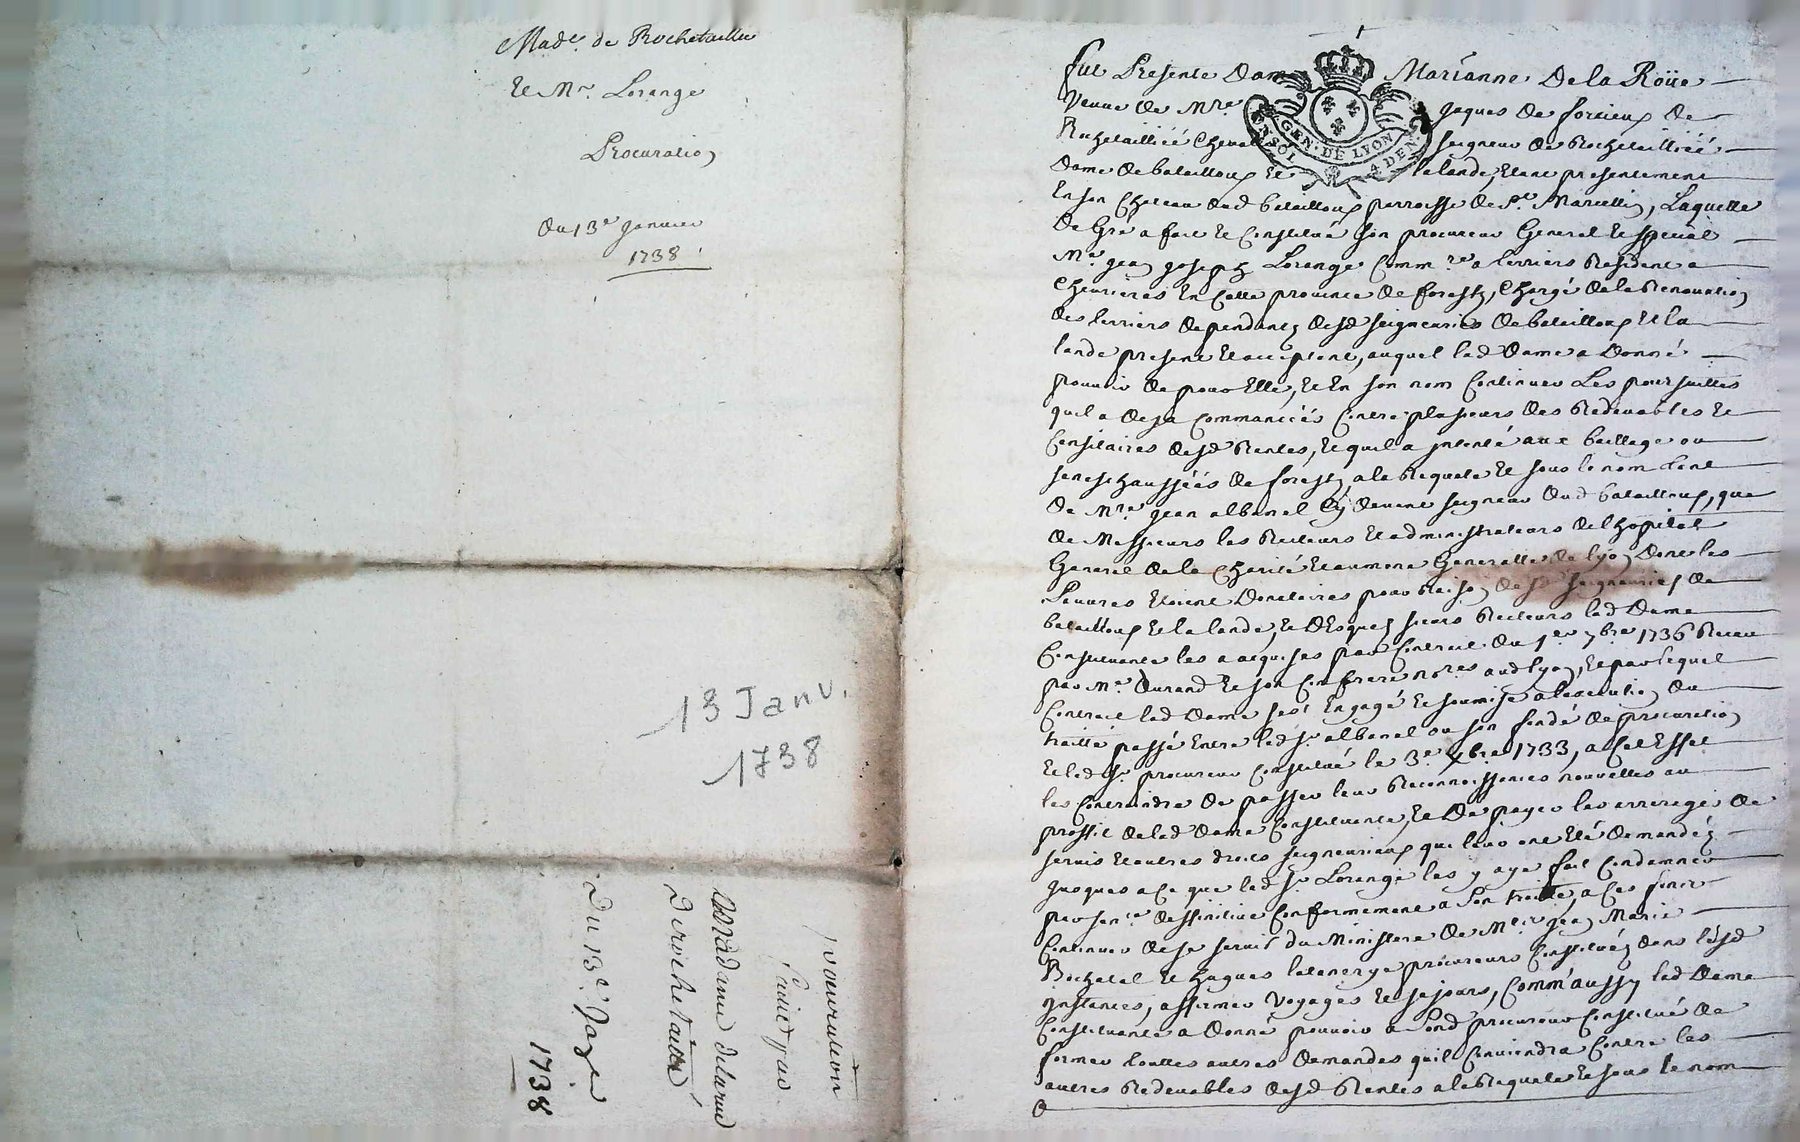 Made. de Rochetaillée
Et Mr. Lorange
Procuration
Du 13e Janvier
1738
13 Janv.
1738
procuration
Madame delarue
De rochetaillée
Du 13e Janer
1738
fut Presente Dame Marianne De la Roüe
Veuve de Mre Jaques de forcieux de
Rochetailliéé Cheval seigneur de Rochetailliéé
Dame de batailloux Et la lande, Etant presentement
En son Chateau dud batailloux parroisse de St. Marcellin, Laquelle
De Gré a fait Et Constitué son procureur General Et special
Me. Jean Joseph Lorange Commre a terriers Resident a
Chevrieres En Cette province de forestz, Chargé de la Renovation
des terriers dependantz desd seigneuries de batailloux Et la
lande present Et acceptant, auquel lad Dame a Donné
pouvoir de pour Elle, Et En son nom Continuer Les poursuittes
quil a deja Commancéés Contre plusieurs des Redevables Et
Censitaires desd Rentes, Et quil a intenté aux baillage ou
seneschaussééé de forestz, a la Requete Et sous le nom tant
de Mre Jean albanel Cy devant seigneur dud batailloux, que
de Messieurs les Recteurs Et administrateurs de lhopital
General de la Charité Et aumone Generalle de lyon Dont les
Pauvres Etoient Donataires pour Raison desd seigneuries de
batailloux Et la lande, Et Desquelz sieurs Recteurs lad Dame
Constituante les a acquises par Contrat du 1er 7bre 1736 Receu
par Me Durand Et son Confrere nores aud lyon, Et par lequel
Contrat lad Dame sest Engagé Et soumise a lexecution du
traitté passé Entre led sr albanel ou son fondé de procuration
Et led sr procureur Constitué le 3e xbre 1733, a Cet Effet
les Contraindre de passer leur Reconnoissances nouvelles au
proffit de lad Dame Constituante, Et De payer les arrerages de
servis Et autres droits seigneuriaux qui leur ont Eté demandéz
jusques a Ce que led sr Lorange les y aye fait Condamner
par sence deffinitive Conformement a Son traitté, a Ces fins
Continuer de se servir du Ministere de Mes Jean Marie
Rochetal Et hugues procureurs Constituéz dans lesd
Instances, affirmer Voyages Et sejours, Comm'aussy lad Dame
Constituante a Donné pouvoir a Sond procureur Constitué de
former touttes autres Demandes quil Conviendra Contre les
autres Redevables desd Rentes a la Requete Et sous le nom